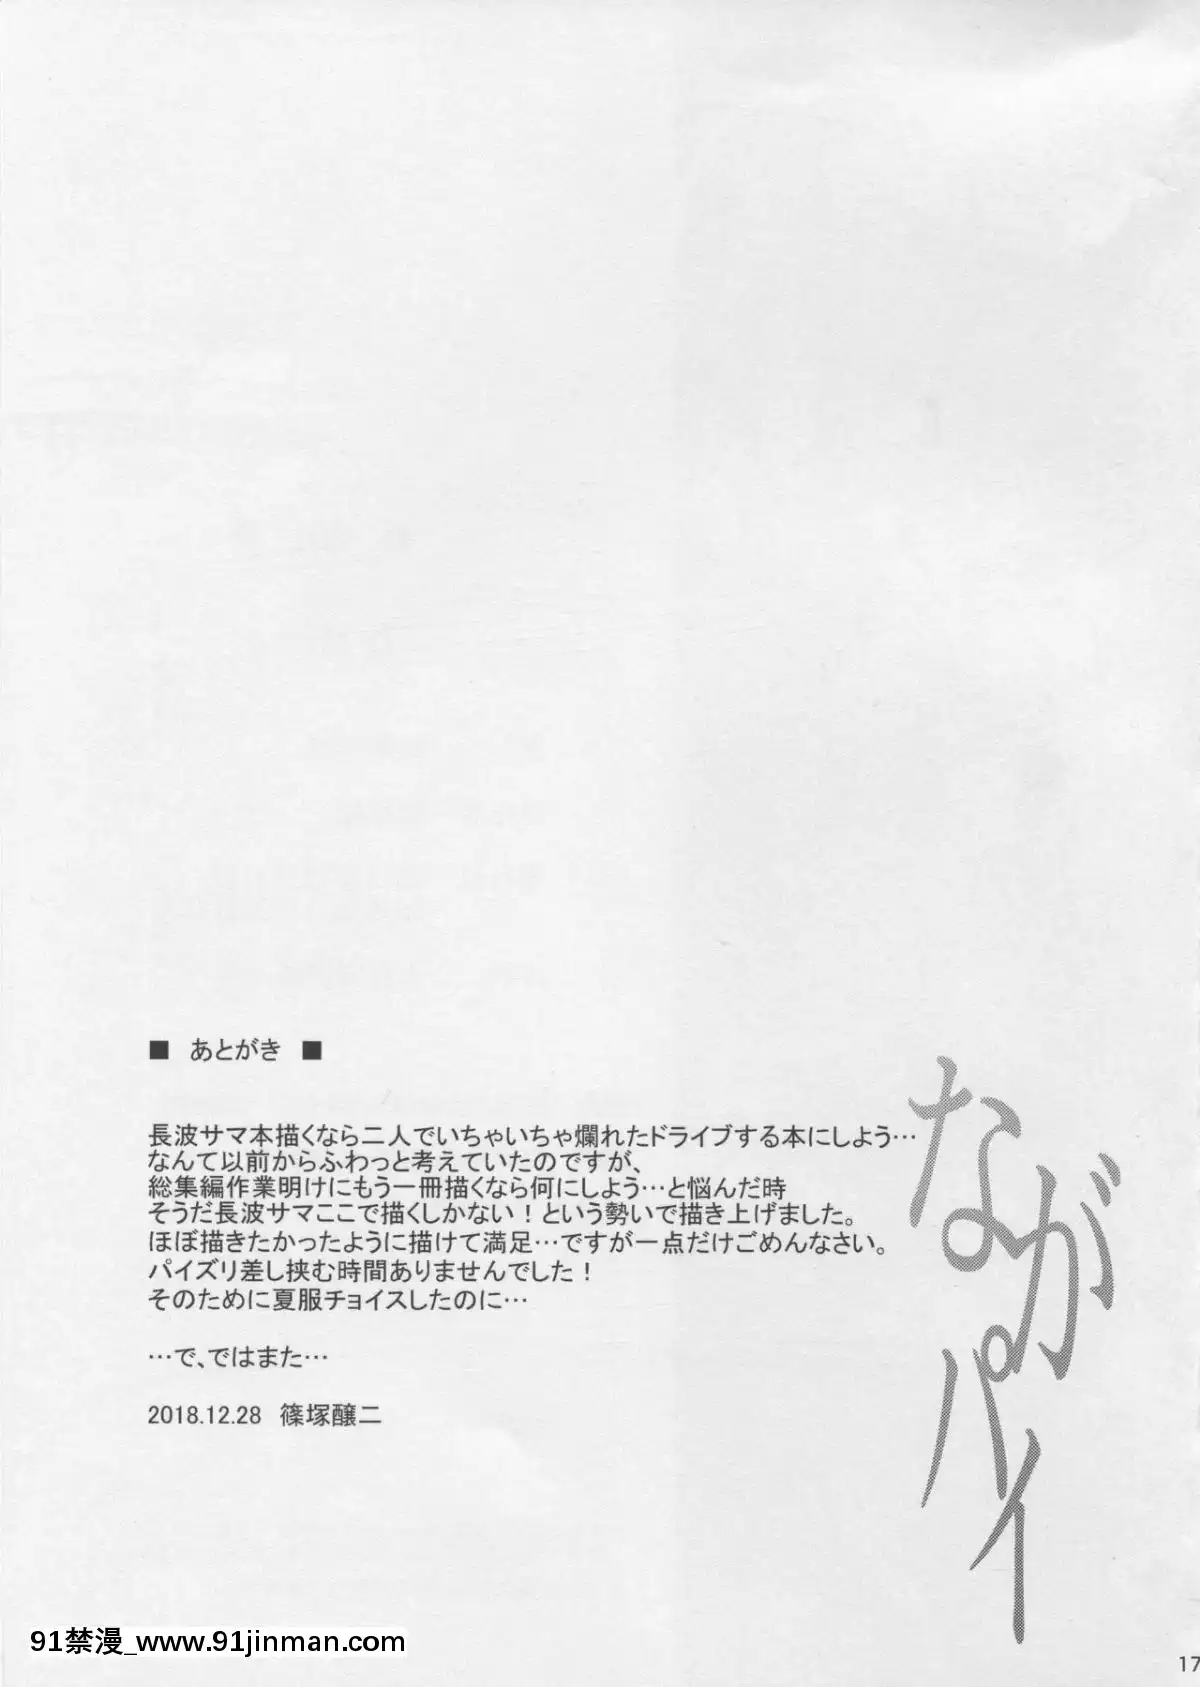 ■ あとがき ■
長波サマ本描くなら二人でいちゃいちゃ爛れたドライブする本にしよう…
なんて以前からふわっと考えていたのですが、
総集編作業明けにもう一冊描くなら何にしよう…と悩んだ時
そうだ長波サマここで描くしかない！という勢いで描き上げました。
ほぼ描きたかったように描けて満足…ですが一点だけごめんなさい。
パイズリ差し挟む時間ありませんでした！
そのために夏服チョイスしたのに…
…で、ではまた…
2018.12.28 篠塚醸二
ながパイ
91禁漫_www.91jinman.com
17